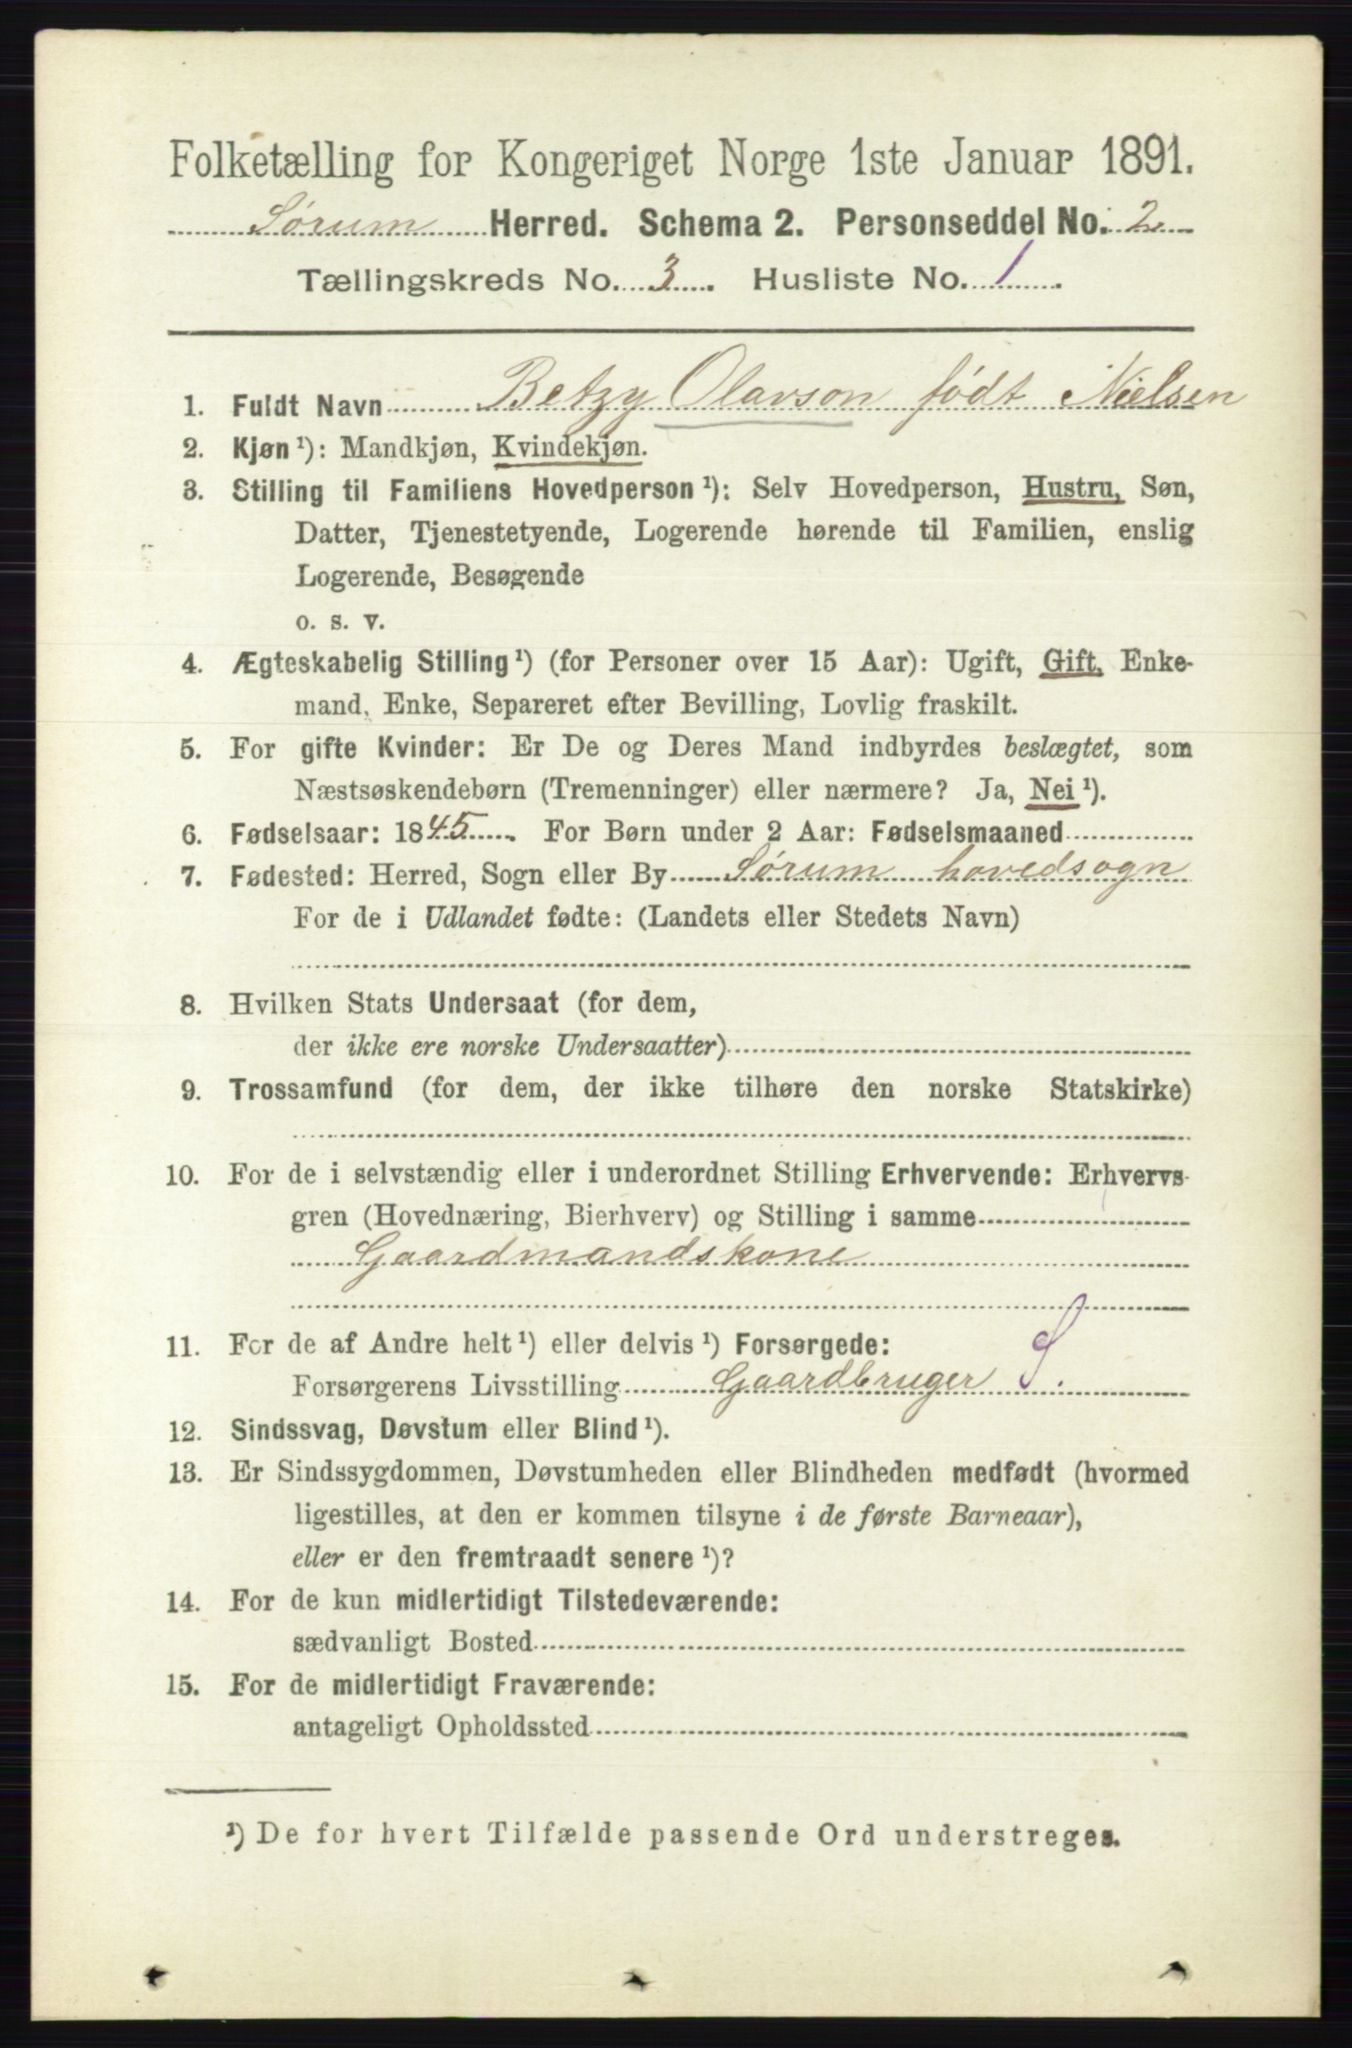 Folketælling for Kongeriget Norge 1ste Januar 1891.
Sørum Herred. Schema 2. Personseddel No. 2
Tællingskreds No. 3. Husliste No. 1.
1. Fuldt Navn Betzy Olavson født Nielsen
2. Kjøn¹): Mandkjøn, Kvindekjøn.
3. Stilling til Familiens Hovedperson¹): Selv Hovedperson, Hustru, Søn,
Datter, Tjenestetyende, Logerende hørende til Familien, enslig
Logerende, Besøgende
o. s. v.
4. Ægteskabelig Stilling¹) (for Personer over 15 Aar): Ugift, Gift, Enke-
mand, Enke, Separeret efter Bevilling, Lovlig fraskilt.
5. For gifte Kvinder: Er De og Deres Mand indbyrdes beslægtet, som
Næstsøskendebørn (Tremenninger) eller nærmere? Ja, Nei¹).
6. Fødselsaar: 1845. For Børn under 2 Aar: Fødselsmaaned
7. Fødested: Herred, Sogn eller By Sørum hovedsogn
For de i Udlandet fødte: (Landets eller Stedets Navn)
8. Hvilken Stats Undersaat (for dem,
der ikke ere norske Undersaatter)
9. Trossamfund (for dem, der ikke tilhøre den norske Statskirke)
10. For de i selvstændig eller i underordnet Stilling Erhvervende: Erhvervs-
gren (Hovednæring, Bierhverv) og Stilling i samme
Gaardmandskone
11. For de af Andre helt¹) eller delvis¹) Forsørgede:
Forsørgerens Livsstilling Gaardbruger S.
12. Sindssvag, Døvstum eller Blind¹).
13. Er Sindssygdommen, Døvstumheden eller Blindheden medfødt (hvormed
ligestilles, at den er kommen tilsyne i de første Barneaar),
eller er den fremtraadt senere¹)?
14. For de kun midlertidigt Tilstedeværende:
sædvanligt Bosted
15. For de midlertidigt Fraværende:
antageligt Opholdssted
¹) De for hvert Tilfælde passende Ord understreges.